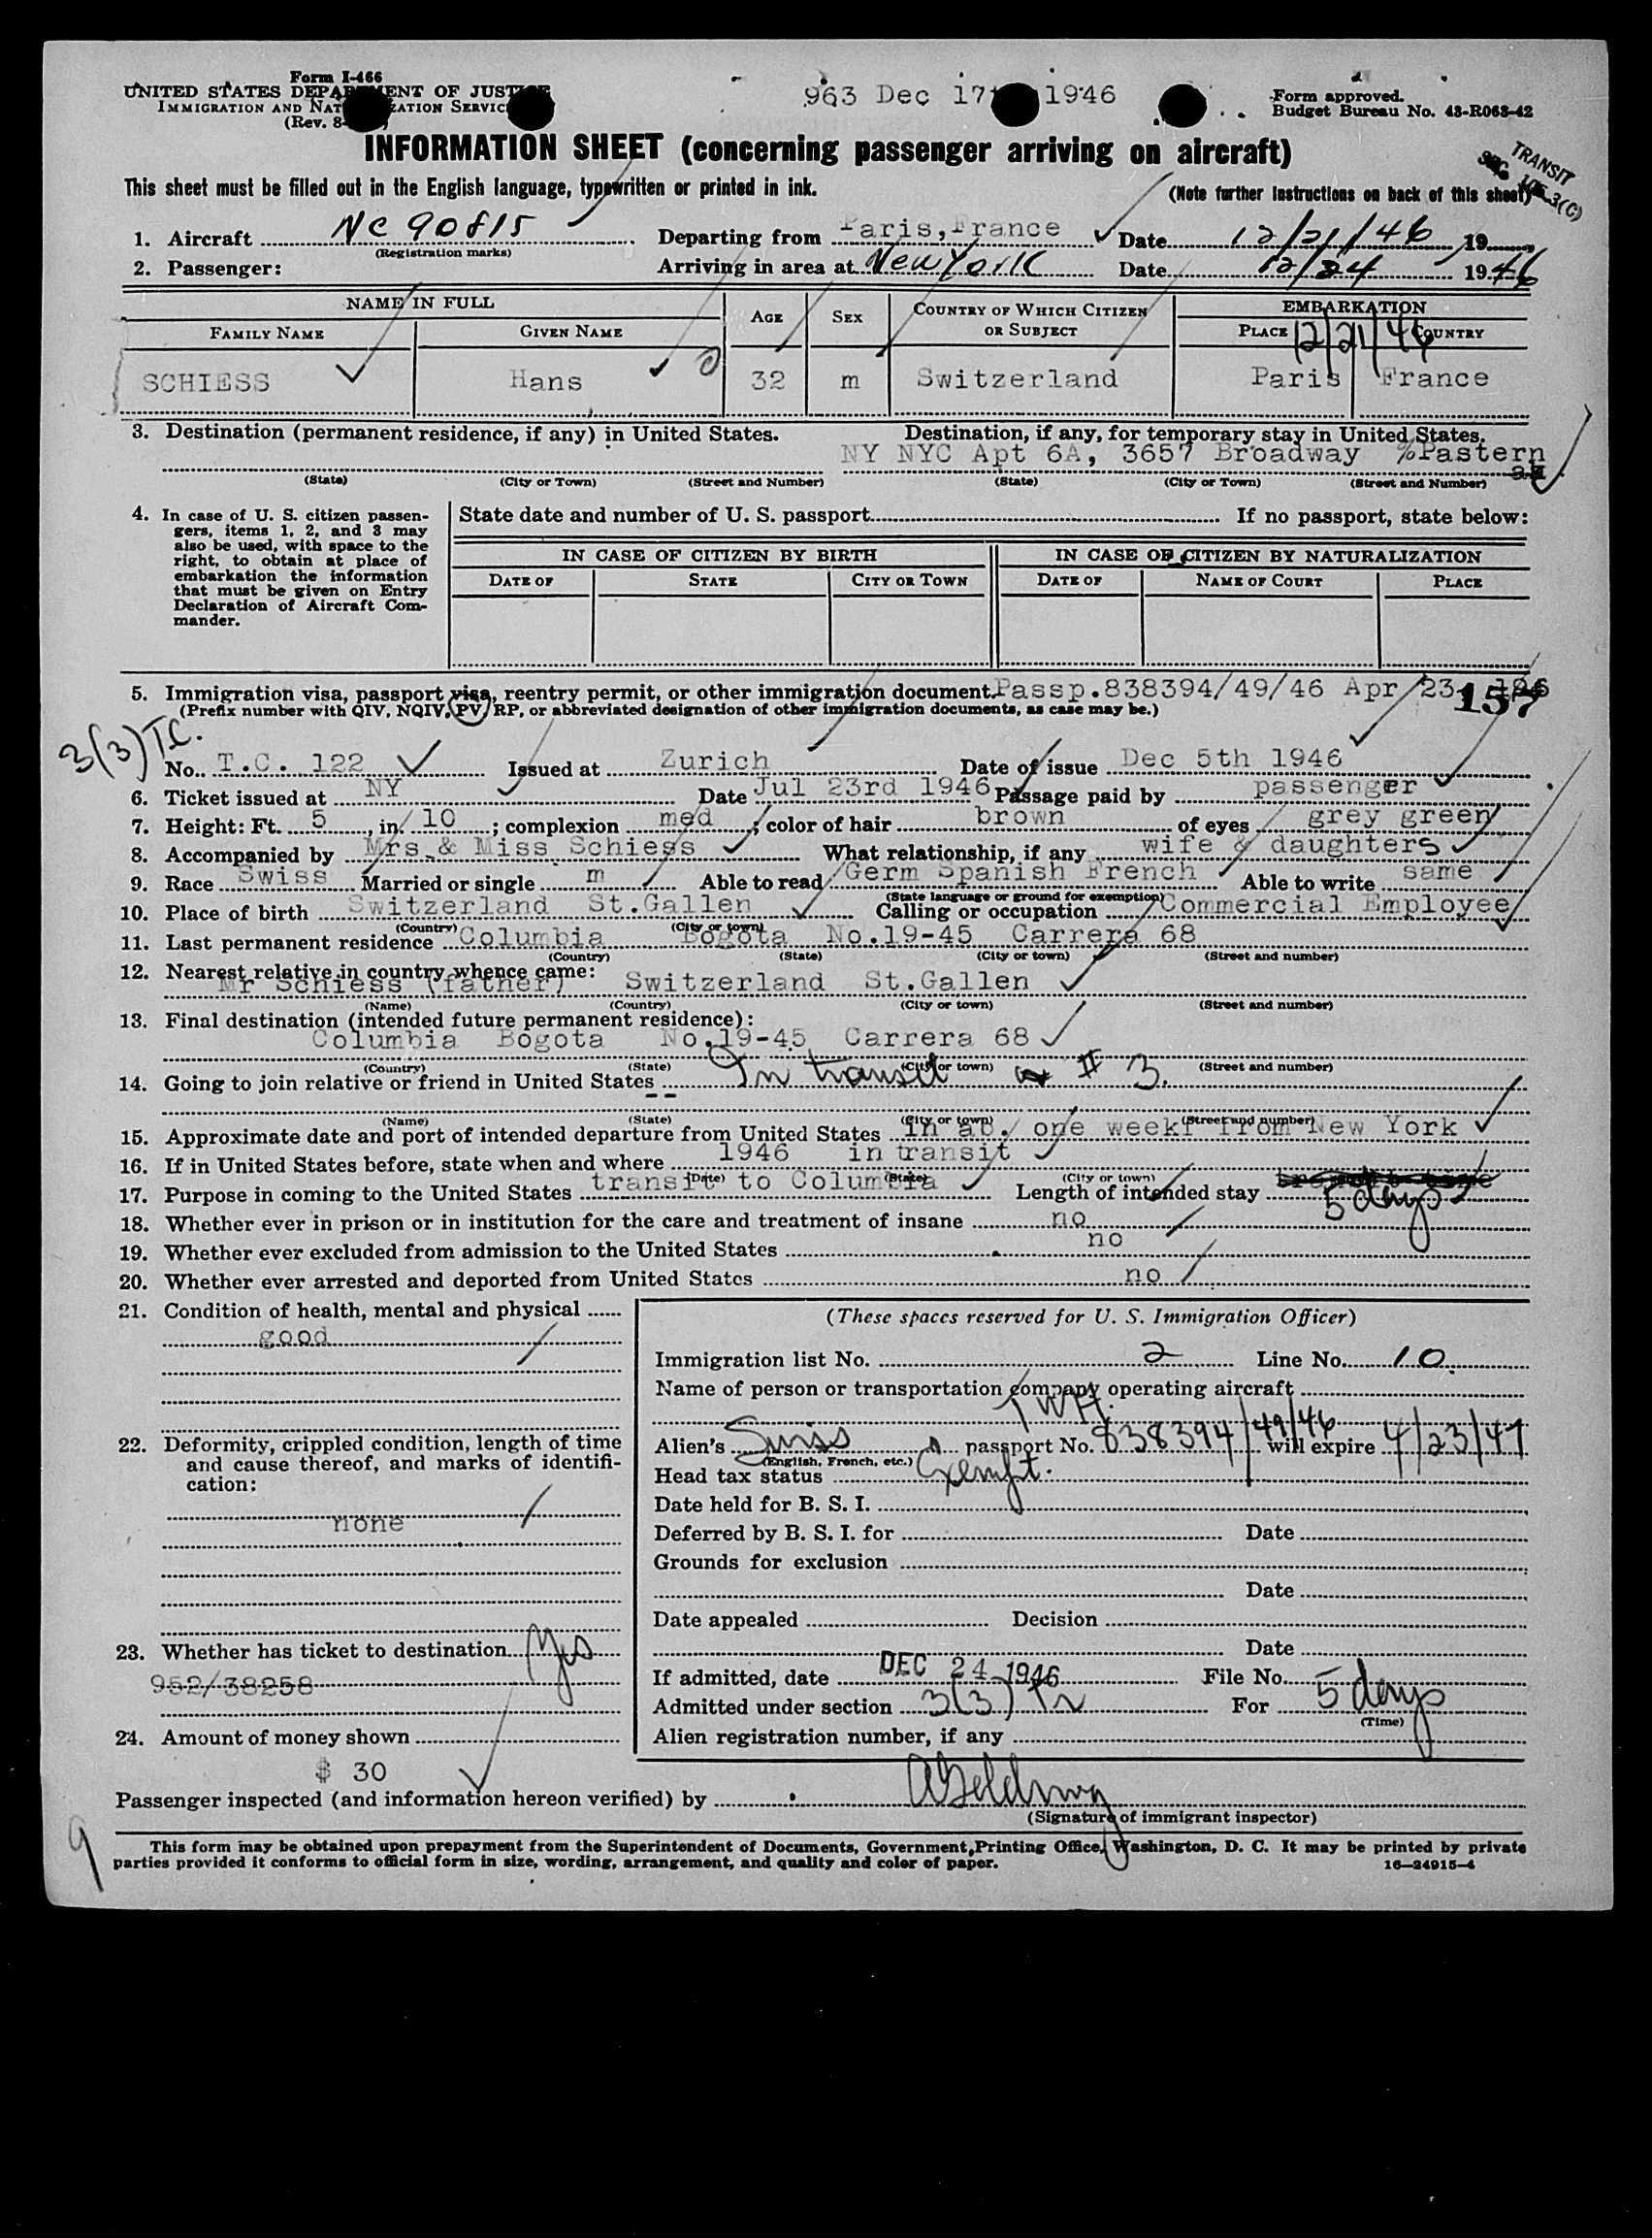 Form I-466
UNITED STATES DEPARTMENT OF JUSTICE
IMMIGRATION AND NATURALIZATION SERVICE
(Rev. 8-
963 Dec 17th 1946
Form approved.
Budget Bureau No. 43-R063-42
INFORMATION SHEET (concerning passenger arriving on aircraft)
TRANSIT
SEC 3(C)
This sheet must be filled out in the English language, typewritten or printed in ink.
(Note further instructions on back of this sheet)
1. Aircraft NC 90815 Departing from Paris, France Date 12/21/46 19
(Registration marks)
2. Passenger: Arriving in area at New York Date 12/24 1946
NAME IN FULL AGE SEX COUNTRY OF WHICH CITIZEN OR SUBJECT EMBARKATION
FAMILY NAME GIVEN NAME PLACE COUNTRY
12/21/46
SCHIESS Hans 32 m Switzerland Paris France
3. Destination (permanent residence, if any) in United States. Destination, if any, for temporary stay in United States.
NY NYC Apt 6A, 3657 Broadway %Pastern
(State) (City or Town) (Street and Number) (State) (City or Town) (Street and Number)
4. In case of U. S. citizen passengers, items 1, 2, and 3 may
also be used, with space to the
right, to obtain at place of
embarkation the information
that must be given on Entry
Declaration of Aircraft Commander.
State date and number of U. S. passport If no passport, state below:
IN CASE OF CITIZEN BY BIRTH IN CASE OF CITIZEN BY NATURALIZATION
DATE OF STATE CITY OR TOWN DATE OF NAME OF COURT PLACE
5. Immigration visa, passport visa, reentry permit, or other immigration document. Passp.838394/49/46 Apr 23
157
(Prefix number with QIV, NQIV, PV, RP, or abbreviated designation of other immigration documents, as case may be.)
3(3) T.C.
No. T.C. 122 Issued at Zurich Date of issue Dec 5th 1946
6. Ticket issued at NY Date Jul 23rd 1946 Passage paid by passenger
7. Height: Ft. 5, in. 10; complexion med; color of hair brown of eyes grey green
8. Accompanied by Mrs & Miss Schiess What relationship, if any wife & daughters
9. Race Swiss Married or single m Able to read Germ Spanish French Able to write same
(State language or ground for exemption)
10. Place of birth Switzerland St.Gallen Calling or occupation Commercial Employee
(Country) (City or town)
11. Last permanent residence Columbia Bogota No.19-45 Carrera 68
(Country) (State) (City or town) (Street and number)
12. Nearest relative in country whence came:
Mr Schiess (father) Switzerland St.Gallen
(Name) (Country) (City or town) (Street and number)
13. Final destination (intended future permanent residence):
Columbia Bogota No.19-45 Carrera 68
(Country) (State) (City or town) (Street and number)
14. Going to join relative or friend in United States In transit # 3.
--
(Name) (State) (City or town) (Street and number)
15. Approximate date and port of intended departure from United States in ab. one week from New York
16. If in United States before, state when and where 1946 in transit
(Date) (State) (City or town)
17. Purpose in coming to the United States transit to Columbia Length of intended stay 5 days
18. Whether ever in prison or in institution for the care and treatment of insane no
19. Whether ever excluded from admission to the United States no
20. Whether ever arrested and deported from United States no
21. Condition of health, mental and physical
good
22. Deformity, crippled condition, length of time
and cause thereof, and marks of identification:
none
23. Whether has ticket to destination Yes
952/38258
24. Amount of money shown
$ 30
(These spaces reserved for U. S. Immigration Officer)
Immigration list No. 2 Line No. 10
Name of person or transportation company operating aircraft
TWA.
Alien's Swiss passport No. 838394/49/46 will expire 4/23/47
(English, French, etc.)
Head tax status Exempt.
Date held for B. S. I.
Deferred by B. S. I. for Date
Grounds for exclusion
Date
Date appealed Decision
Date
If admitted, date DEC 24 1946 File No.
Admitted under section 3(3) Tr For 5 days
(Time)
Alien registration number, if any
Passenger inspected (and information hereon verified) by
(Signature of immigrant inspector)
9
This form may be obtained upon prepayment from the Superintendent of Documents, Government Printing Office, Washington, D. C. It may be printed by private
parties provided it conforms to official form in size, wording, arrangement, and quality and color of paper.
16—24915-4